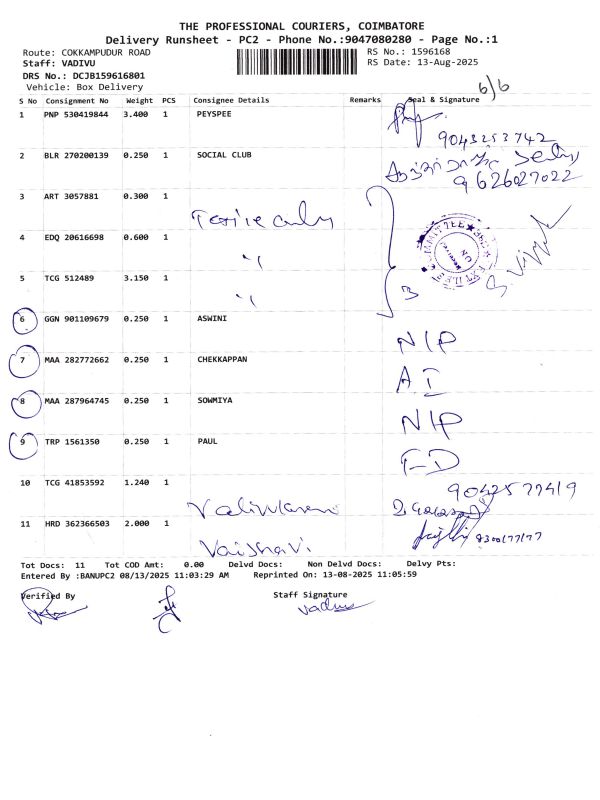 THE PROFESSIONAL COURIERS, COIMBATORE
Delivery Runsheet - PC2 - Phone No.:9047080280 - Page No.:1
Route: COKKAMPUDUR ROAD
RS No.: 1596168
Staff: VADIVU
RS Date: 13-Aug-2025
DRS No.: DCJB159616801
Vehicle: Box Delivery
6/6
S No Consignment No Weight PCS Consignee Details Remarks Seal & Signature
1 PNP 530419844 3.400 1 PEYSPEE
9043253742
2 BLR 270200139 0.250 1 SOCIAL CLUB
9626027022
3 ART 3057881 0.300 1
4 EDQ 20616698 0.600 1 "
5 TCG 512489 3.150 1 " 3
6 GGN 901109679 0.250 1 ASWINI N/P
7 MAA 282772662 0.250 1 CHEKKAPPAN A.I
8 MAA 287964745 0.250 1 SOWMIYA N/P
9 TRP 1561350 0.250 1 PAUL
10 TCG 41853592 1.240 1
11 HRD 362366503 2.000 1 Vaishavi
Tot Docs: 11 Tot COD Amt: 0.00 Delvd Docs: Non Delvd Docs: Delvy Pts:
Entered By :BANUPC2 08/13/2025 11:03:29 AM Reprinted On: 13-08-2025 11:05:59
Verified By Staff Signature